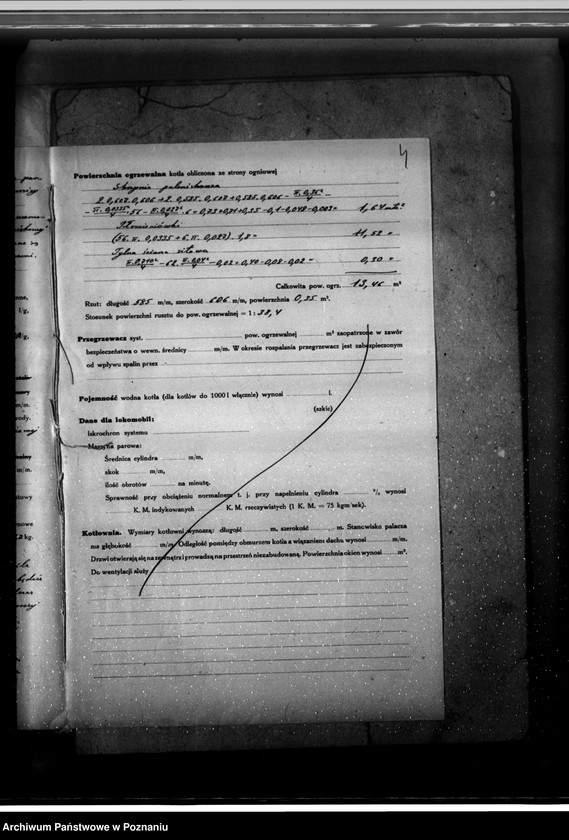 4
Powierzchnia ogrzewalna kotła obliczona ze strony ogniowej
Skrzynia paleniskowa
2.0,607.0,606+2.0,585.0,607+0,585.0,606 -
= 1,64 m²
Płomieniówki
(56.π.0,0335+6.π.0,027).1,8= 11,52 "
Tylna ściana sitowa
-0,02=0,40-0,08-0,02= 0,30 "
Całkowita pow. ogrz. 13,46 m²
Rzut: długość 585 m/m, szerokość 606 m/m, powierzchnia 0,35 m².
Stosunek powierzchni rusztu do pow. ogrzewalnej = 1: 38,4
Przegrzewacz syst. pow. ogrzewalnej m² zaopatrzone w zawór
bezpieczeństwa o wewn. średnicy m/m. W okresie rozpalania przegrzewacz jest zabezpieczonym
od wpływu spalin przez
Pojemność wodna kotła (dla kotłów do 1000 l włącznie) wynosi l.
(szkic)
Dane dla lokomobil:
Iskrochron systemu
Maszyna parowa:
Średnica cylindra m/m,
skok m/m,
ilość obrotów na minutę.
Sprawność przy obciążeniu normalnem t. j. przy napełnieniu cylindra %, wynosi
K. M. indykowanych K. M. rzeczywistych (1 K. M. = 75 kgm/sek).
Kotłownia. Wymiary kotłowni wynoszą: długość m, szerokość m. Stanowisko palacza
ma głębokość m/m. Odległość pomiędzy obmurzem kotła a wiązaniem dachu wynosi m/m.
Drzwi otwierają się na zewnątrz i prowadzą na przestrzeń niezabudowaną. Powierzchnia okien wynosi m².
Do wentylacji służy
Archiwum Państwowe w Poznaniu